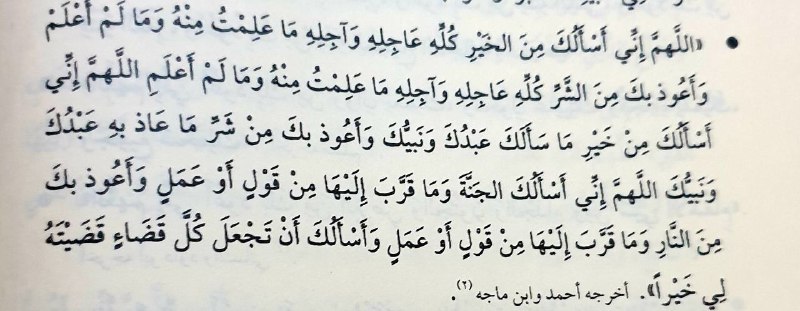 • «اللَّهمَّ إِنِّي أَسْأَلُكَ مِنَ الخَيْرِ كُلِّهِ عَاجِلِهِ وَآجِلِهِ مَا عَلِمْتُ مِنْهُ وَمَا لَمْ أَعْلَمْ
وَأَعُوذ بكَ مِنَ الشَّرِّ كُلِّهِ عَاجِلِهِ وَآجِلِهِ مَا عَلِمْتُ مِنْهُ وَمَا لَمْ أَعْلَمِ اللَّهمَّ إِنِّي
أَسْأَلُكَ مِنْ خَيْرِ مَا سَأَلَكَ عَبْدُكَ وَنَبِيُّكَ وَأَعُوذ بكَ مِنْ شَرِّ مَا عَاذ بِهِ عَبْدُكَ
وَنَبِيُّكَ اللَّهمَّ إِنِّي أَسْأَلُكَ الجَنَّةَ وَمَا قَرَّبَ إِلَيْهَا مِنْ قَوْلٍ أَوْ عَمَلٍ وَأَعُوذ بكَ
مِنَ النَّارِ وَمَا قَرَّبَ إِلَيْهَا مِنْ قَوْلٍ أَوْ عَمَلٍ وَأَسْأَلُكَ أَنْ تَجْعَلَ كُلَّ قَضَاءٍ قَضَيْتَهُ
لِي خَيْراً». أخرجه أحمد وابن ماجه (٢).